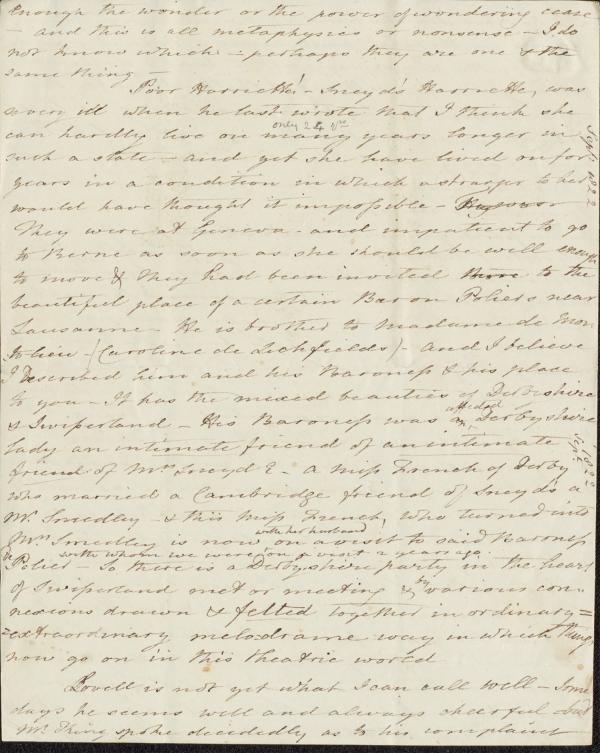 Enough the wonder or the power of wondering cease
– and this is all metaphysics or nonsense – I do
not know which – perhaps they are one & the
same thing –
Poor Harriette! – Sneyd's Harriette, was
so very ill when he last wrote that I think she
only 24 yrs
can hardly live on many years longer in
such a state – and yet she have lived on for
years in a condition in which a stranger to her
would have thought it impossible –
They were at Geneva – and impatient to go
to Berne as soon as she should be well enough
to move & they had been invited there to the
beautiful place of a certain Baron Poliers near
Lausanne – He is brother to Madame de Mon
tolieu – (Caroline de Lichfields) – And I believe
I described him and his Baroness & his place
to you – It has the mixed beauties of Derbyshire
& Swisserland – His Baroness was a Derbyshire
lady an intimate friend of an intimate
friend of Mrs Sneyd E – a Miss French of Derby
who married a Cambridge friend of Sneyd's a
Mr. Smedley – & this Miss French, who turned into
with her husband
Mrs Smedley is now on a visit to said Baroness
de with whom we were on a visit 2 years ago.
Polier – So there is a Derbyshire party in the heart
of Swisserland met or meeting & by various con-
nexions drawn & felted together in ordinary=
=extraordinary melodrame way in which things
now go on in this theatric world
Lovell is not yet what I can call well – Some
days he seems well and always cheerful – but
Mr. King spoke decidedly as to his complaint
Sept 1822
Sept 1822